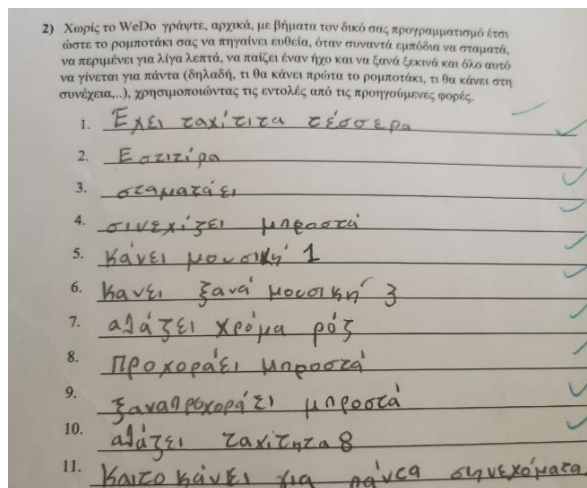 2) Χωρίς το WeDo γράψτε, αρχικά, με βήματα τον δικό σας προγραμματισμό έτσι
ώστε το ρομποτάκι σας να πηγαίνει ευθεία, όταν συναντά εμπόδια να σταματά,
να περιμένει για λίγα λεπτά, να παίζει έναν ήχο και να ξανά ξεκινά και όλο αυτό
να γίνεται για πάντα (δηλαδή, τι θα κάνει πρώτα το ρομποτάκι, τι θα κάνει στη
συνέχεια,..), χρησιμοποιώντας τις εντολές από τις προηγούμενες φορές.
1. Έχει ταχίτιτα τέσσερα
2. Εστιτίρα
3. σταματάει
4. σινεχίζει μπροστά
5. κάνει μουσική 1
6. κανει ξανά μουσική 3
7. αλάζει χρόμα ρόζ
8. Προχοράει μπροστά
9. ξαναπροχοράει μπροστά
10. αλάζει ταχίτητα 8
11. Και το κάνει για πάντα σηνεχόματα